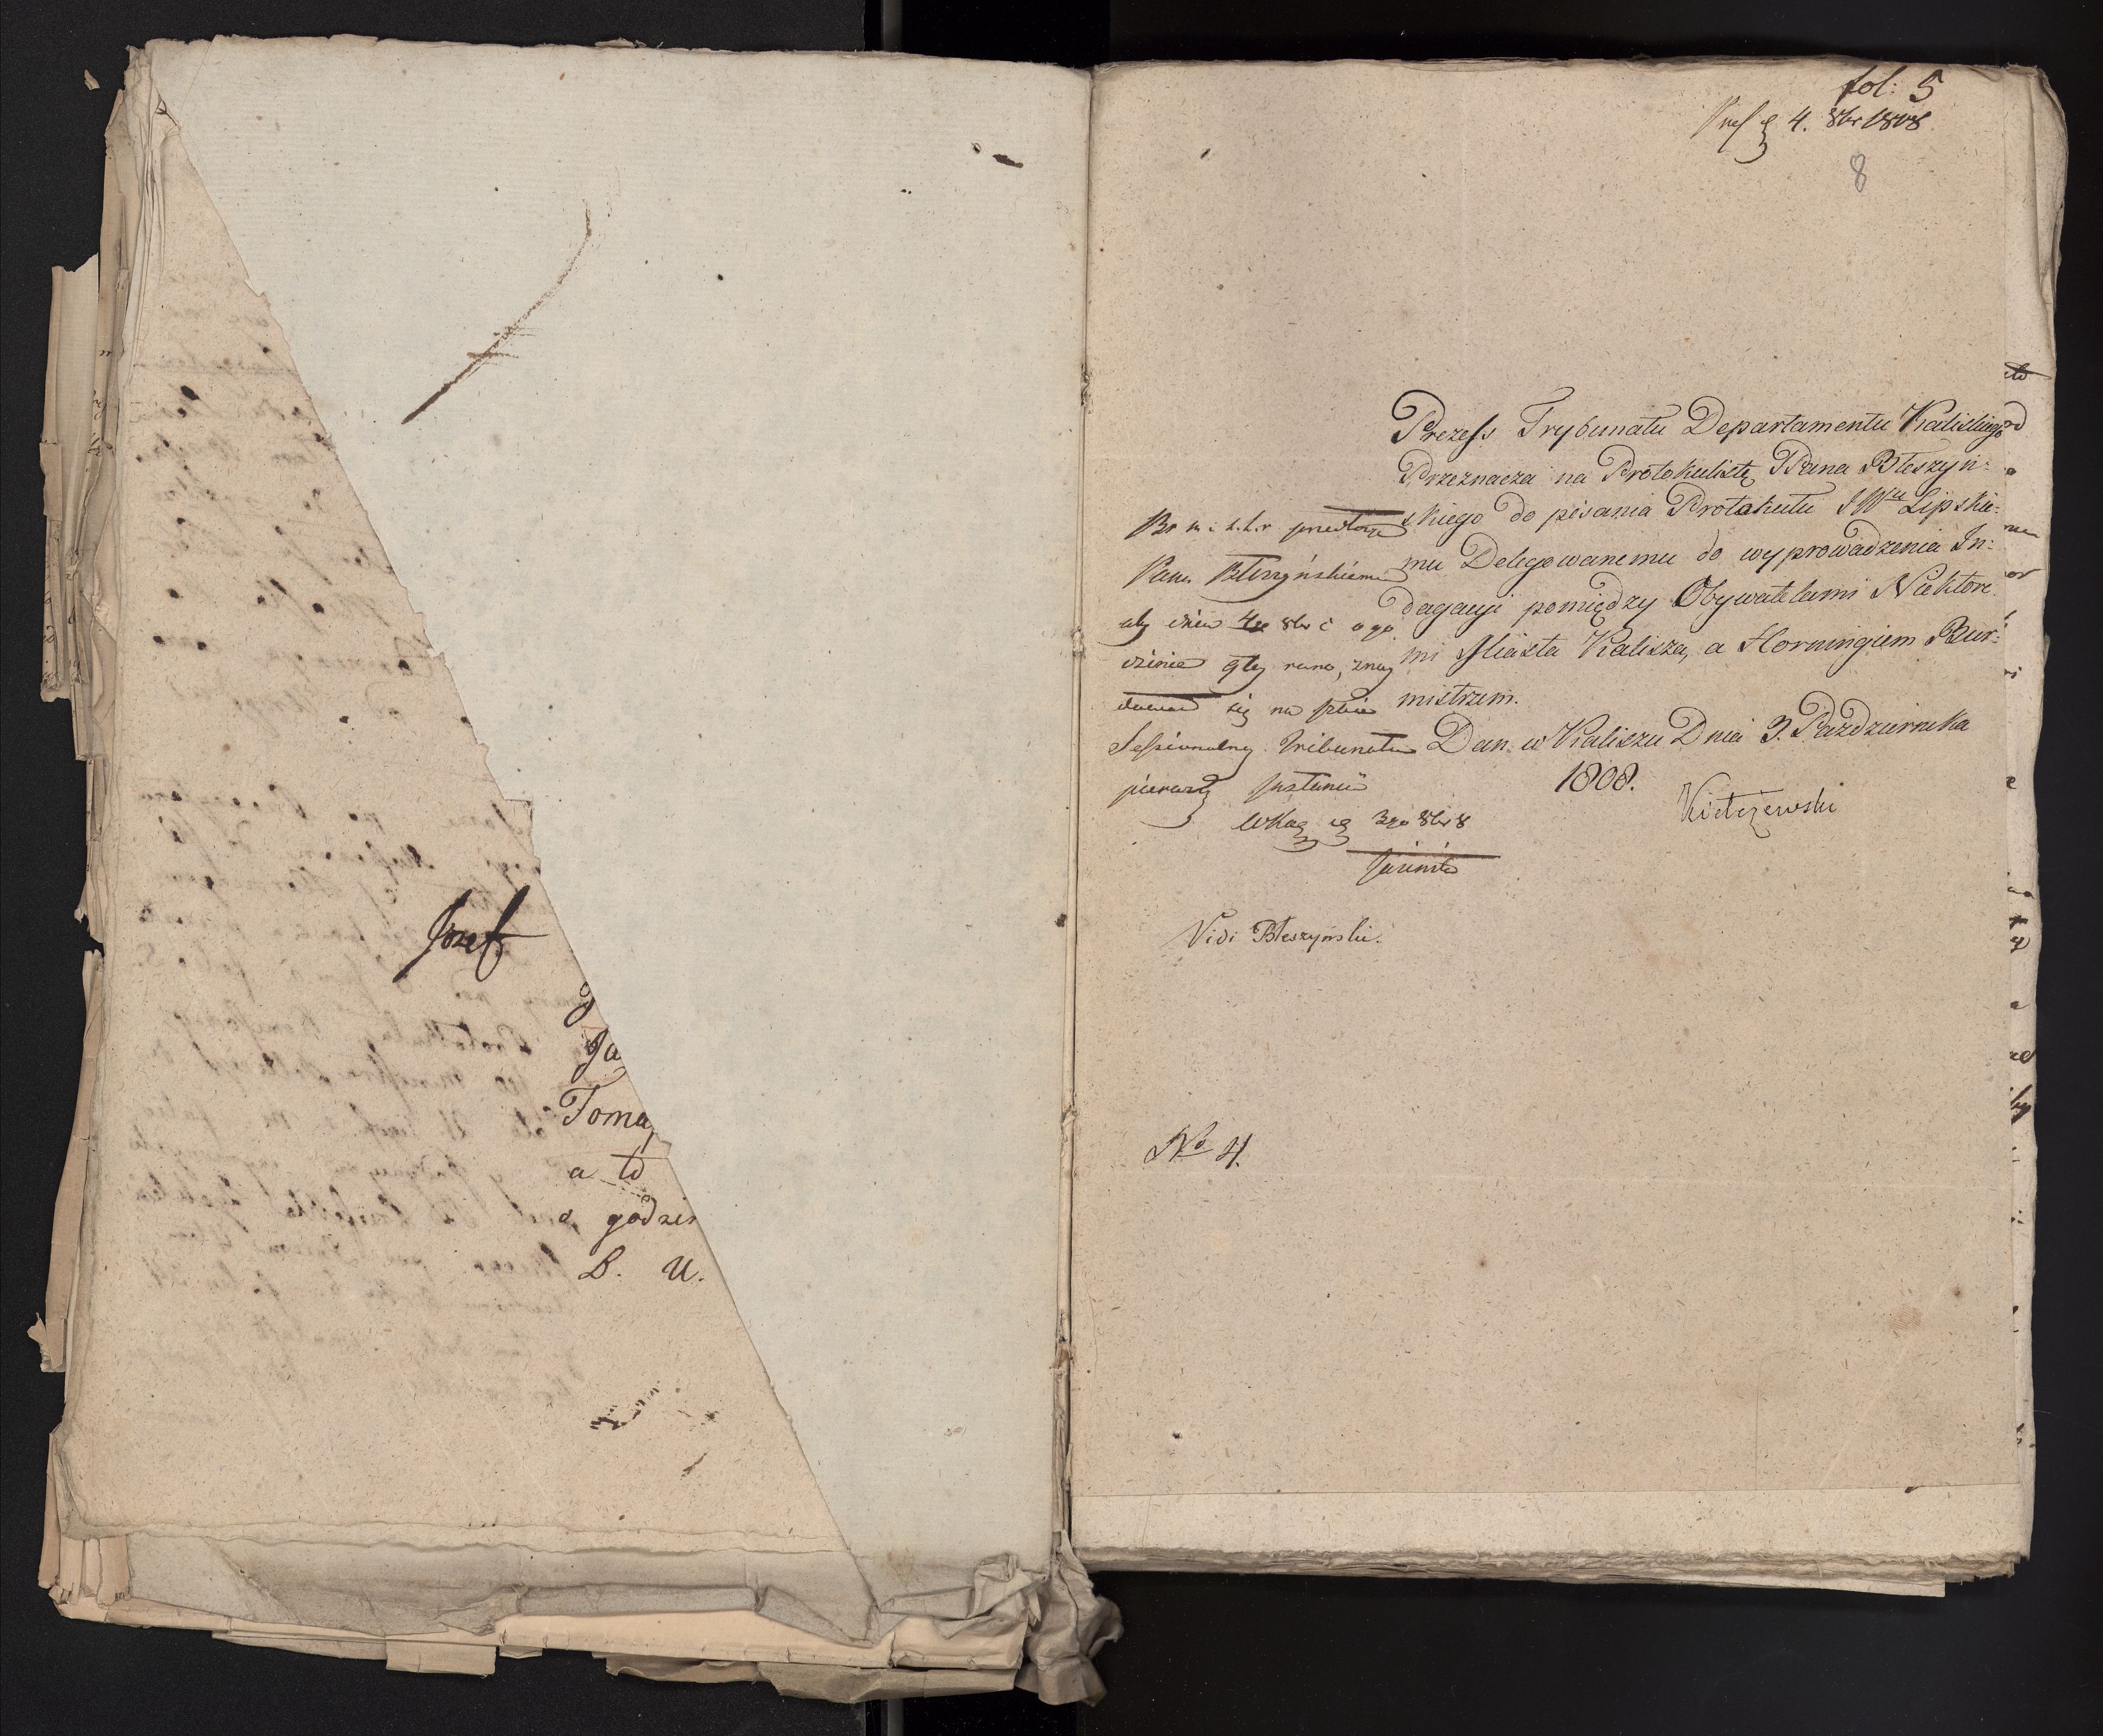 Josef
Ja
Toma
a to
o godzin
B. U.
fol: 5
4. 8br 1808
8
Prezess Trybunału Departamentu Kaliskiego
Przeznacza na Protokulistę Pana Błeszyń-
skiego do pisania Protokułu JWu Lipskie-
mu Delegowanemu do wyprowadzenia In-
dagacyi pomiędzy Obywatelami Niektóre-
mi Miasta Kalisza, a Horningiem Bur-
mistrzem.
Dan. w Kaliszu Dnia 3. Października
1808.
Kiełczewski
Panu Błeszyńskiemu
aby dnia 4go 8br c o go
dzinie 9tej rano, znay
dował się na Izbie
Sessionalney Tribunału
pierwszey Instancii
3go 8br 8
Vidi Błeszyński.
No 4.